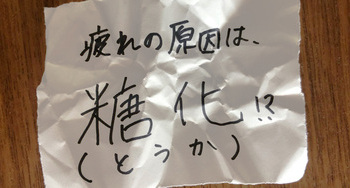 疲れの原因は、
糖化!?
(とうか)